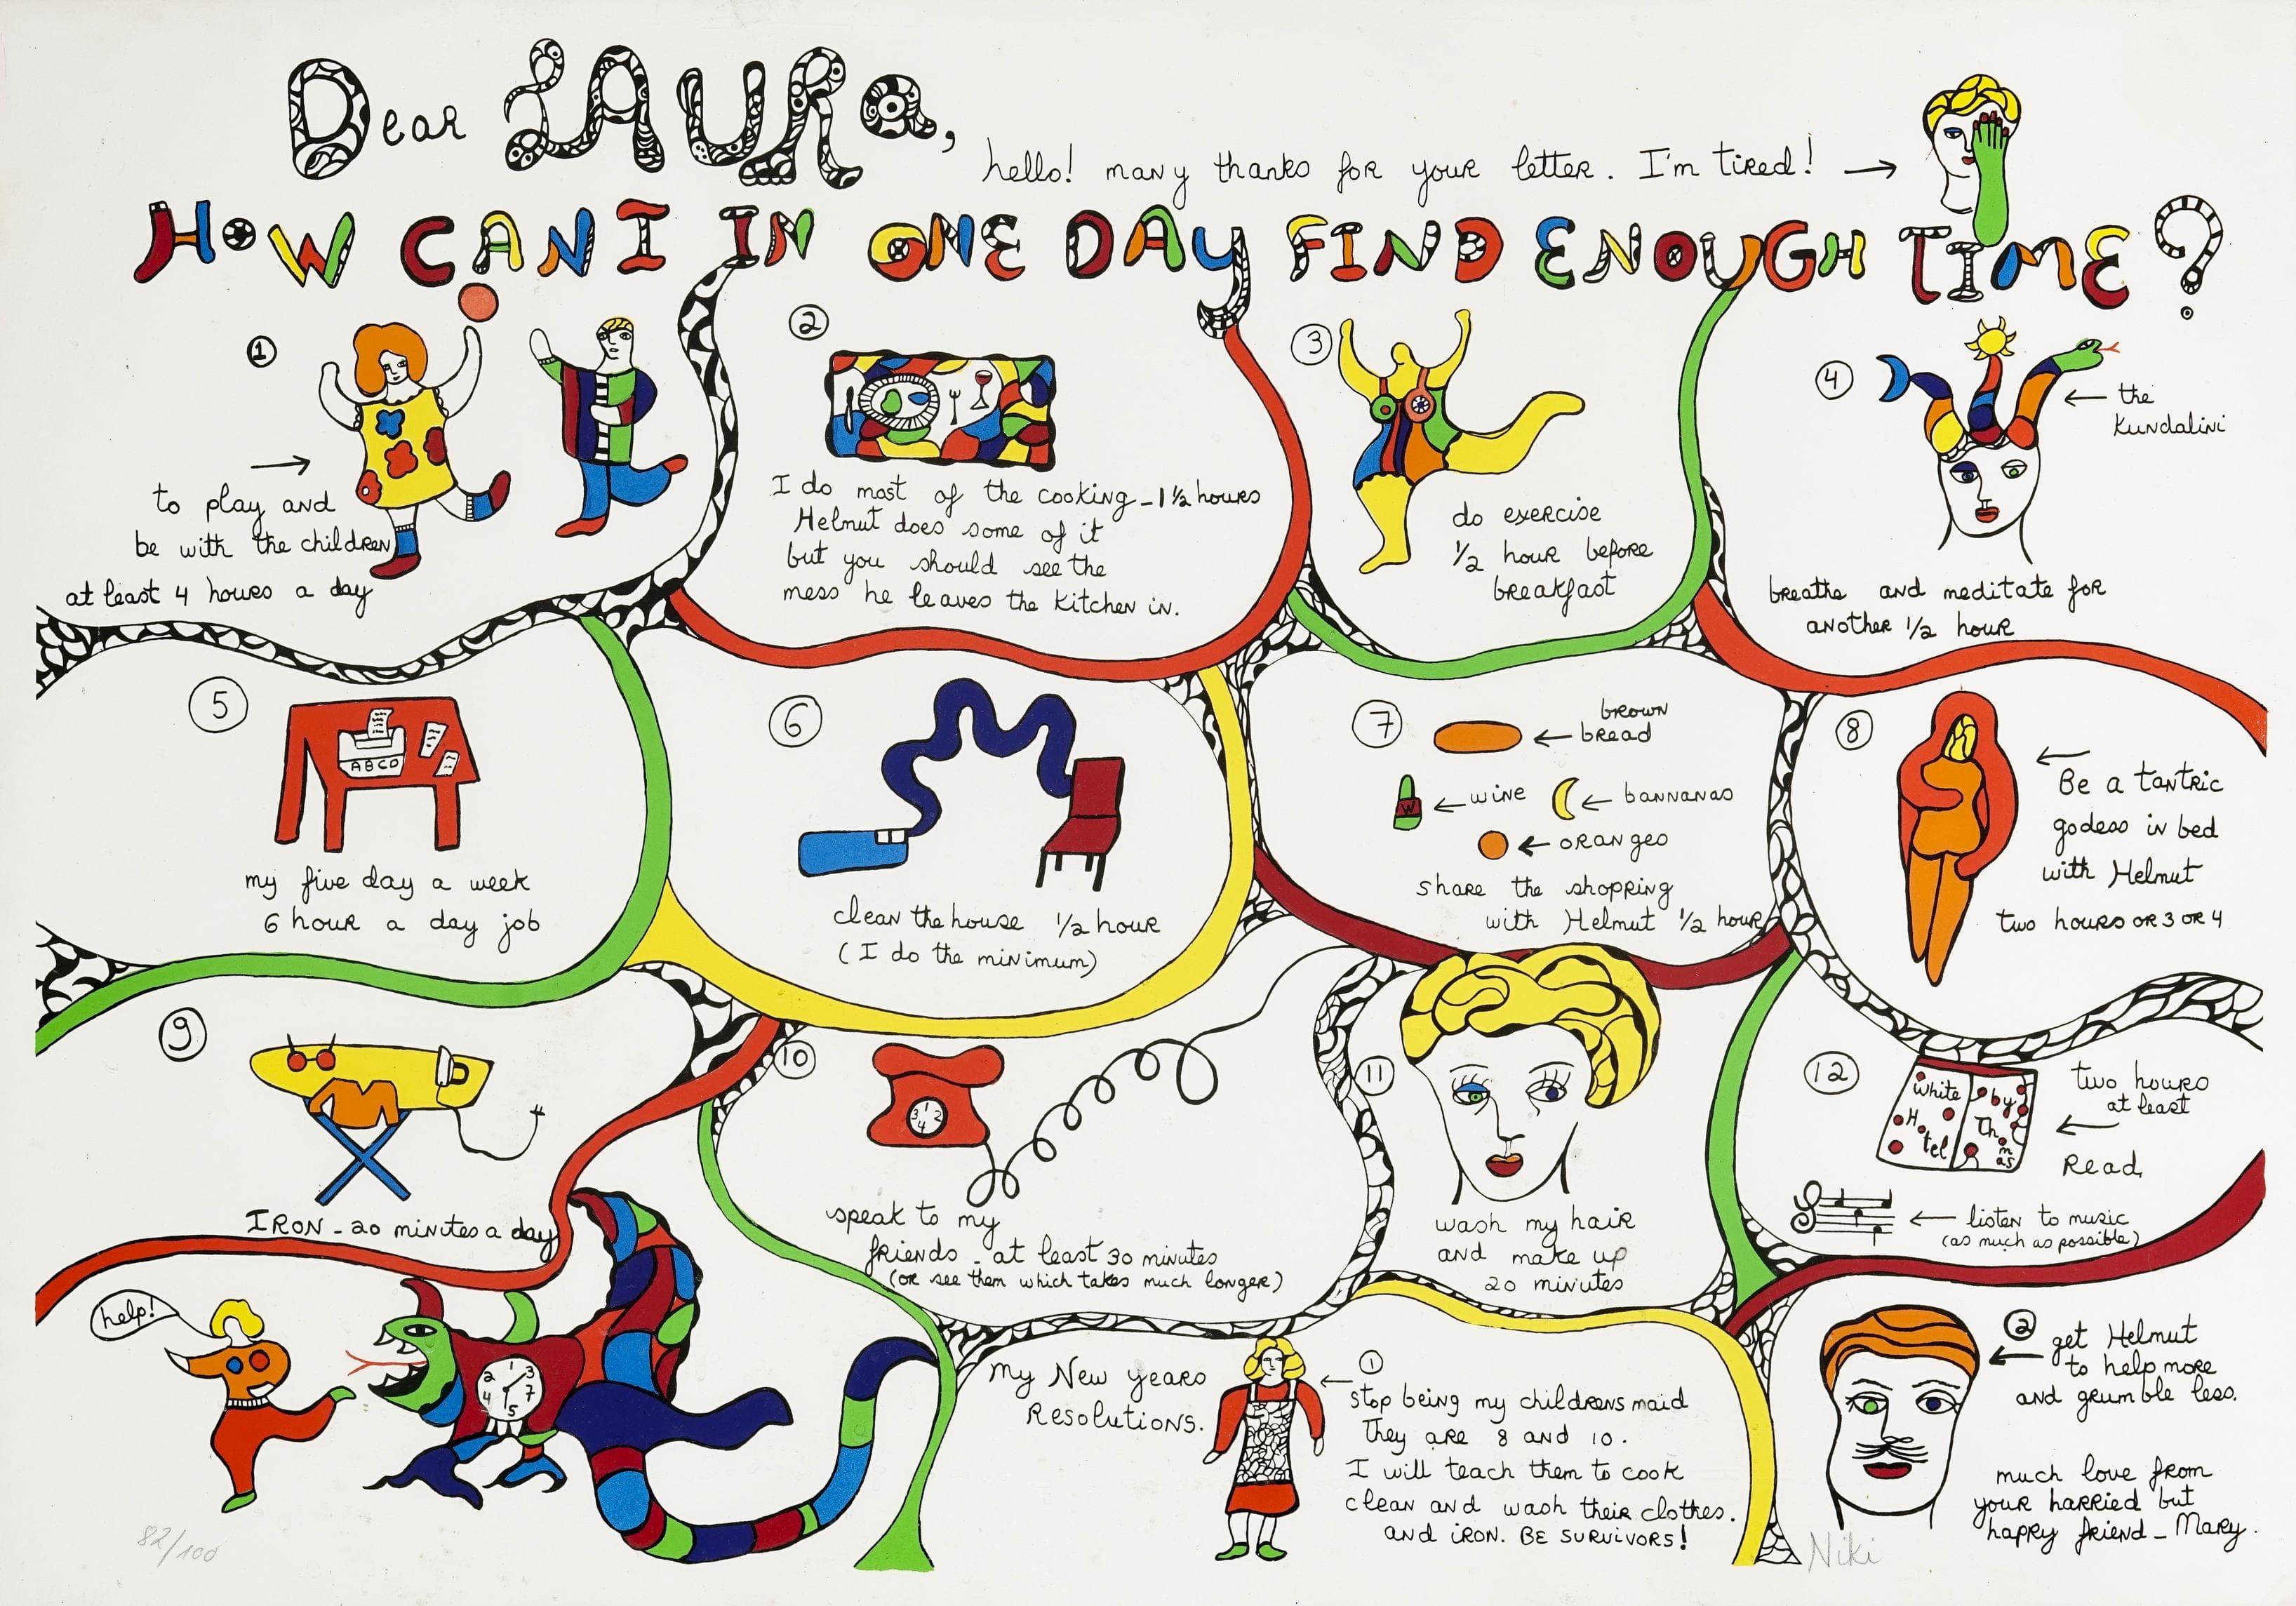 Dear LAURa,
hello! many thanks for your letter. I'm tired!
HOW CAN I IN ONE DAY FIND ENOUGH TIME?
1
to play and
be with the children
at least 4 hours a day
2
I do most of the cooking - 1 1/2 hours
Helmut does some of it
but you should see the
mess he leaves the kitchen in.
3
do exercise
1/2 hour before
breakfast
4
the
Kundalini
breathe and meditate for
another 1/2 hour
5
ABCD
my five day a week
6 hour a day job
6
clean the house 1/2 hour
(I do the minimum)
7
brown
bread
W
wine
bannanas
oranges
share the shopping
with Helmut 1/2 hour
8
Be a tantric
godess in bed
with Helmut
two hours OR 3 OR 4
9
IRON - 20 minutes a day
10
1
3 2
4
speak to my
friends - at least 30 minutes
(or see them which takes much longer)
11
wash my hair
and make up
20 minutes
12
White
H tel
by
Th m as
two hours
at least
Read
listen to music
(as much as possible)
help!
1
2 3
4 7
5
My New years
Resolutions.
1
stop being my childrens maid
They are 8 and 10.
I will teach them to cook
clean and wash their clothes.
and iron. BE SURVIVORS!
2
get Helmut
to help more
and grumble less.
much love from
your harried but
happy friend - Mary.
82/100
Niki